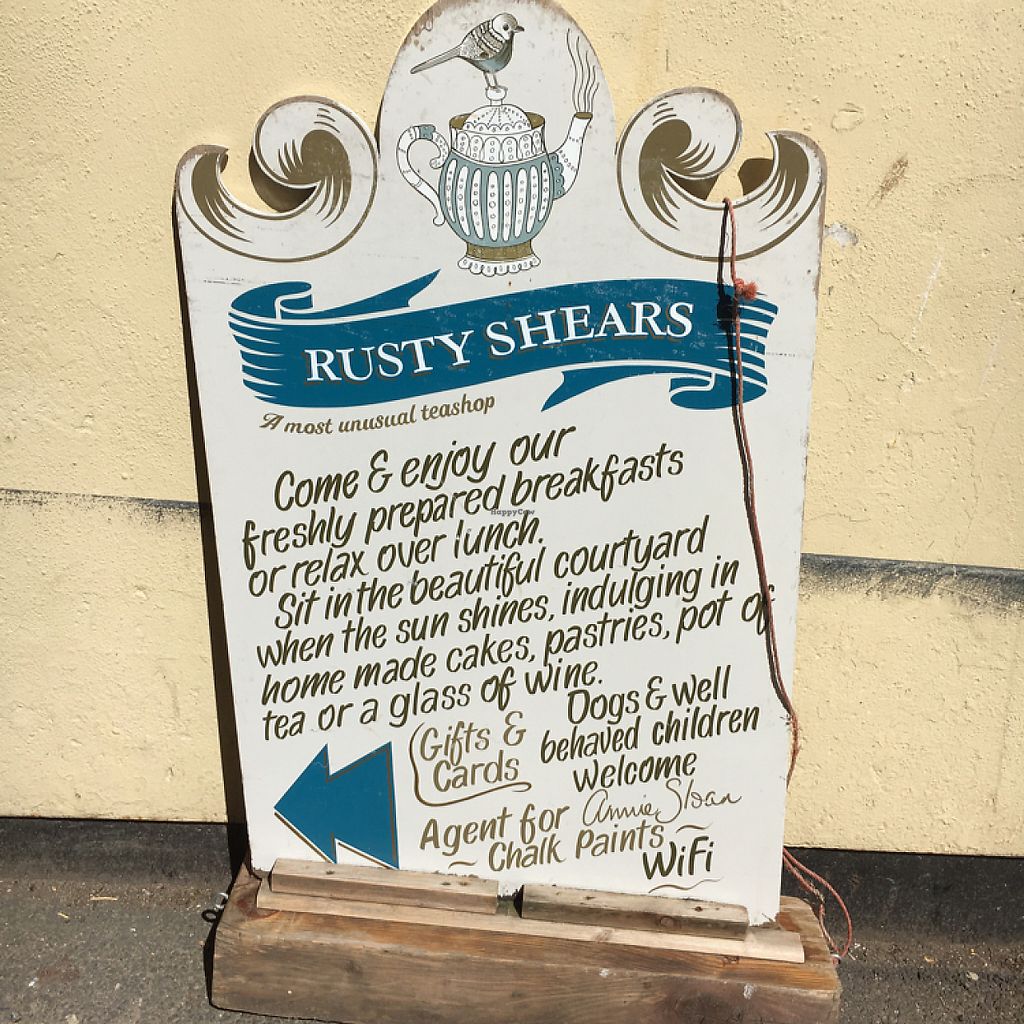 RUSTY SHEARS
A most unusual teashop
Come & enjoy our
freshly prepared breakfasts
or relax over lunch.
Sit in the beautiful courtyard
when the sun shines, indulging in
home made cakes, pastries, pot of
tea or a glass of wine.
Dogs & well
behaved children
welcome
Gifts &
Cards
Agent for Annie Sloan
~ Chalk Paints ~
WiFi
HappyCow